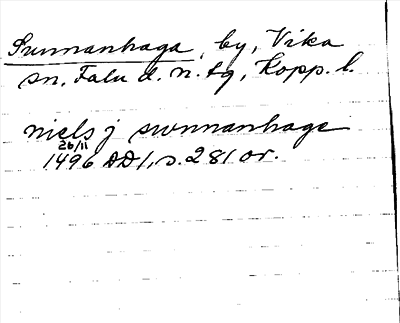 Sunnanhaga, by, Vika
sn, Falu d. n. tg, Kopp. l.
niels j swnnanhage
26/11
1496 DD 1, s. 281 or.